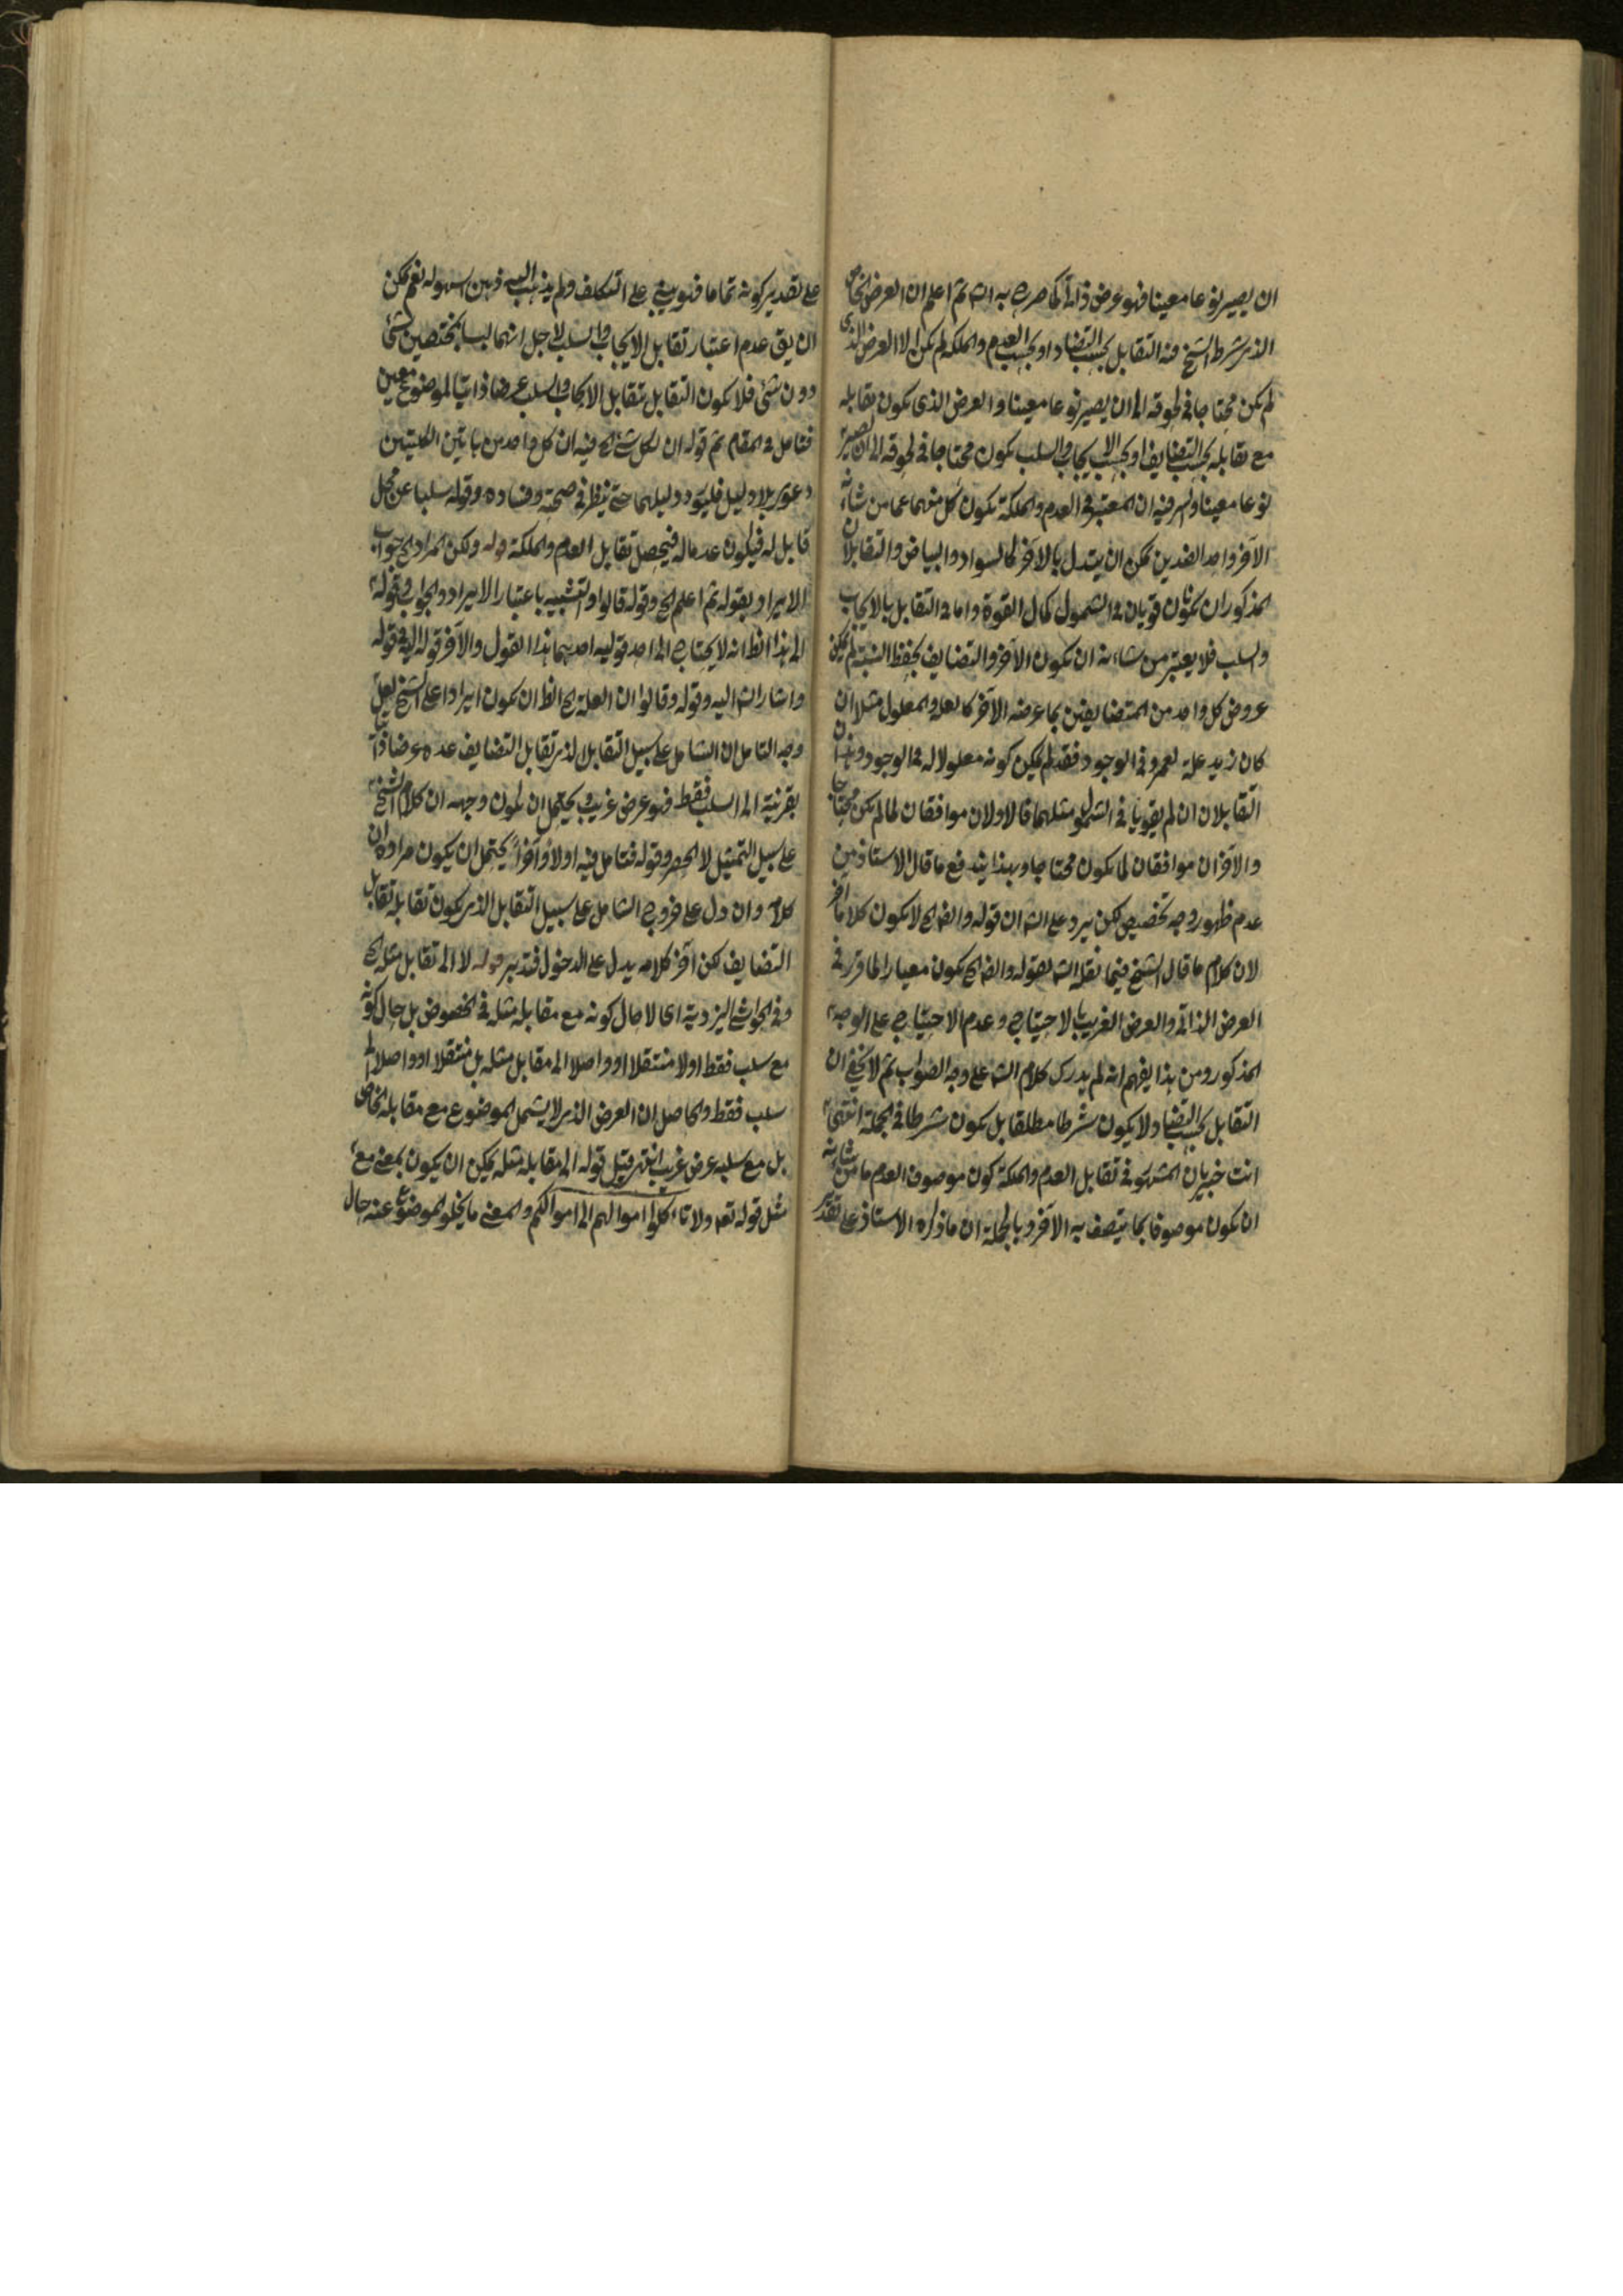 ان يصير نوعا معينا فهو عرض ذاتى كما صرح به الش ثم اعلم ان العرض الخاص
الذى شرط الشيخ فيه التقابل بحسب التضاد او بحسب العدم والملكة لم يكن الا العرض الذى
لم يكن محتاجا فى لحوقه الى ان يصير نوعا معينا والعرض الذى يكون تقابله
مع تقابله بحسب التضايف او بحسب الايجاب والسلب يكون محتاجا فى لحوقه الى ان يصير
نوعا معينا والسر فيه ان المعتبر فى العدم والملكة يكون كل منهما عما من شأنه
الآخر واحد الضدين يمكن ان يتبدل بالآخر كالسواد والبياض والتقابلان
المذكوران يكونان قويان فى الشمول كمال القوة واما فى التقابل بالايجاب
والسلب فلا يعتبر من شاءنه ان يكون الآخر والتضايف بحفظ النسبة لم يمكن
عروض كل واحد من المتضايفين بما عرضه الآخر كالعلة والمعلول مثلا ان
كان زيد علة لعمرو فى الوجود فقد لم يمكن كونه معلولا له فى الوجود وهذان
التقابلان ان لم يقويا فى الشمول مثلهما فالاولان موافقان لما لم يكن محتاجا
والآخران موافقان لما يكون محتاجا وبهذا يندفع ما قال الاستاذ من
عدم ظهور وجه تخصيص لكن يرد على الش ان قوله وايضا الخ لا يكون كلاما آخر
لان كلام ما قال الشيخ فيما نقله الش بقوله وايضا الخ يكون معيارا لما قرر فى
العرض الذاتى والعرض الغريب بالاحتياج وعدم الاحتياج على الوجه
المذكور ومن هذا يفهم انه لم يدرك كلام الش على وجه الصواب ثم لا يخفى ان
التقابل بحسب التضاد لا يكون شرطا مطلقا بل يكون شرطا فى الجملة انتهى
انت خبير بان المشهور فى تقابل العدم والملكة كون موصوف العدم ما من شانه
ان يكون موصوفا بما يتصف به الآخر وبالجملة ان ما ذكره الاستاذ على تقدير
على تقدير كونه تماما فهو يبنى على التكلف ولم يذهب اليه ذهن بسهولة نعم يمكن
ان يق عدم اعتبار تقابل الايجاب والسلب لاجل انهما ليسا بمختصين بشئ
دون شئ فلا يكون التقابل بتقابل الايجاب والسلب عرضا ذاتيا لموضوع معين
فتامل فى المقام ثم قوله ان لكل شئ الخ فيه ان كل واحد من هاتين الكليتين
دعوى بلا دليل فليورد دليلهما حتى ينظر فى صحته وفساده وقوله سلبا عن محل
قابل له فيكون عدما له فيحصل تقابل العدم والملكة قوله ولكن المراد الخ جواب
الايراد بقوله ثم اعلم الخ وقوله قالوا والتشبيه باعتبار الايراد والجواب وقوله
الى هذا الظ انه لا يحتاج الى احد قوليه احديهما هذا القول والآخر قوله اليه فى قوله
واشار الش اليه وقوله وقالوا ان العلة الخ الظ ان يكون ايرادا على الشيخ لعل
وجه التامل ان الشامل على سبيل التقابل الذى تقابل التضايف عده عرضا ذاتيا
بقرينة الى السلب فقط فهو عرض غريب ويحتمل ان يكون وجهه ان كلام الشيخ
على سبيل التمثيل لا الحصر وقوله فتامل فيه اولا وآخرا يحتمل ان يكون مراده ان
كلامه وان دل على خروج الشامل على سبيل التقابل الذى يكون تقابله تقابل
التضايف لكن آخر كلامه يدل على الدخول فتدبر قوله لا الى تقابل مثله الخ
وفى الحواشى اليزدية اى لا حال كونه مع مقابله مثله فى الخصوص بل حال كونه
مع سلب فقط اولا منتقلا او واصلا الى مقابل مثله بل منتقلا او واصلا الى
سلب فقط والحاصل ان العرض الذى لا يشمل الموضوع مع مقابله الخاص
بل مع سلبه عرض غريب انتهى قيل قوله الى مقابله مثله يمكن ان يكون بمعنى مع
مثل قوله تعه ولا تاءكلوا اموالهم الى اموالكم والمعنى ما يخلو الموضوع عنه حال